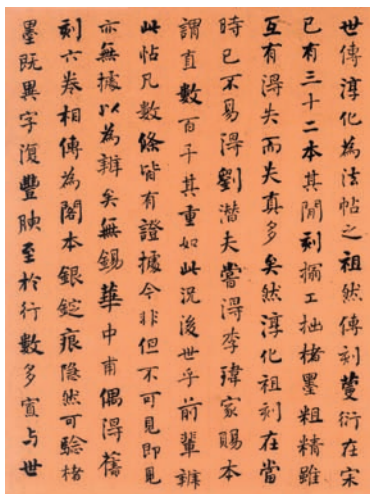 世傳淳化為法帖之祖然傳刻蔓衍在宋
已有三十二本其間刻搨工拙楮墨粗精雖
互有得失而失真多矣然淳化祖刻在當
時已不易得劉潛夫嘗得李瑋家賜本
謂直數百千其重如此況後世乎前輩辨
此帖凡數條皆有證據今非但不可見即見
亦無據以為辨矣無錫華中甫偶得舊
刻六卷相傳為閣本銀錠痕隱然可驗楮
墨既異字復豐腴至於行數多寡與世